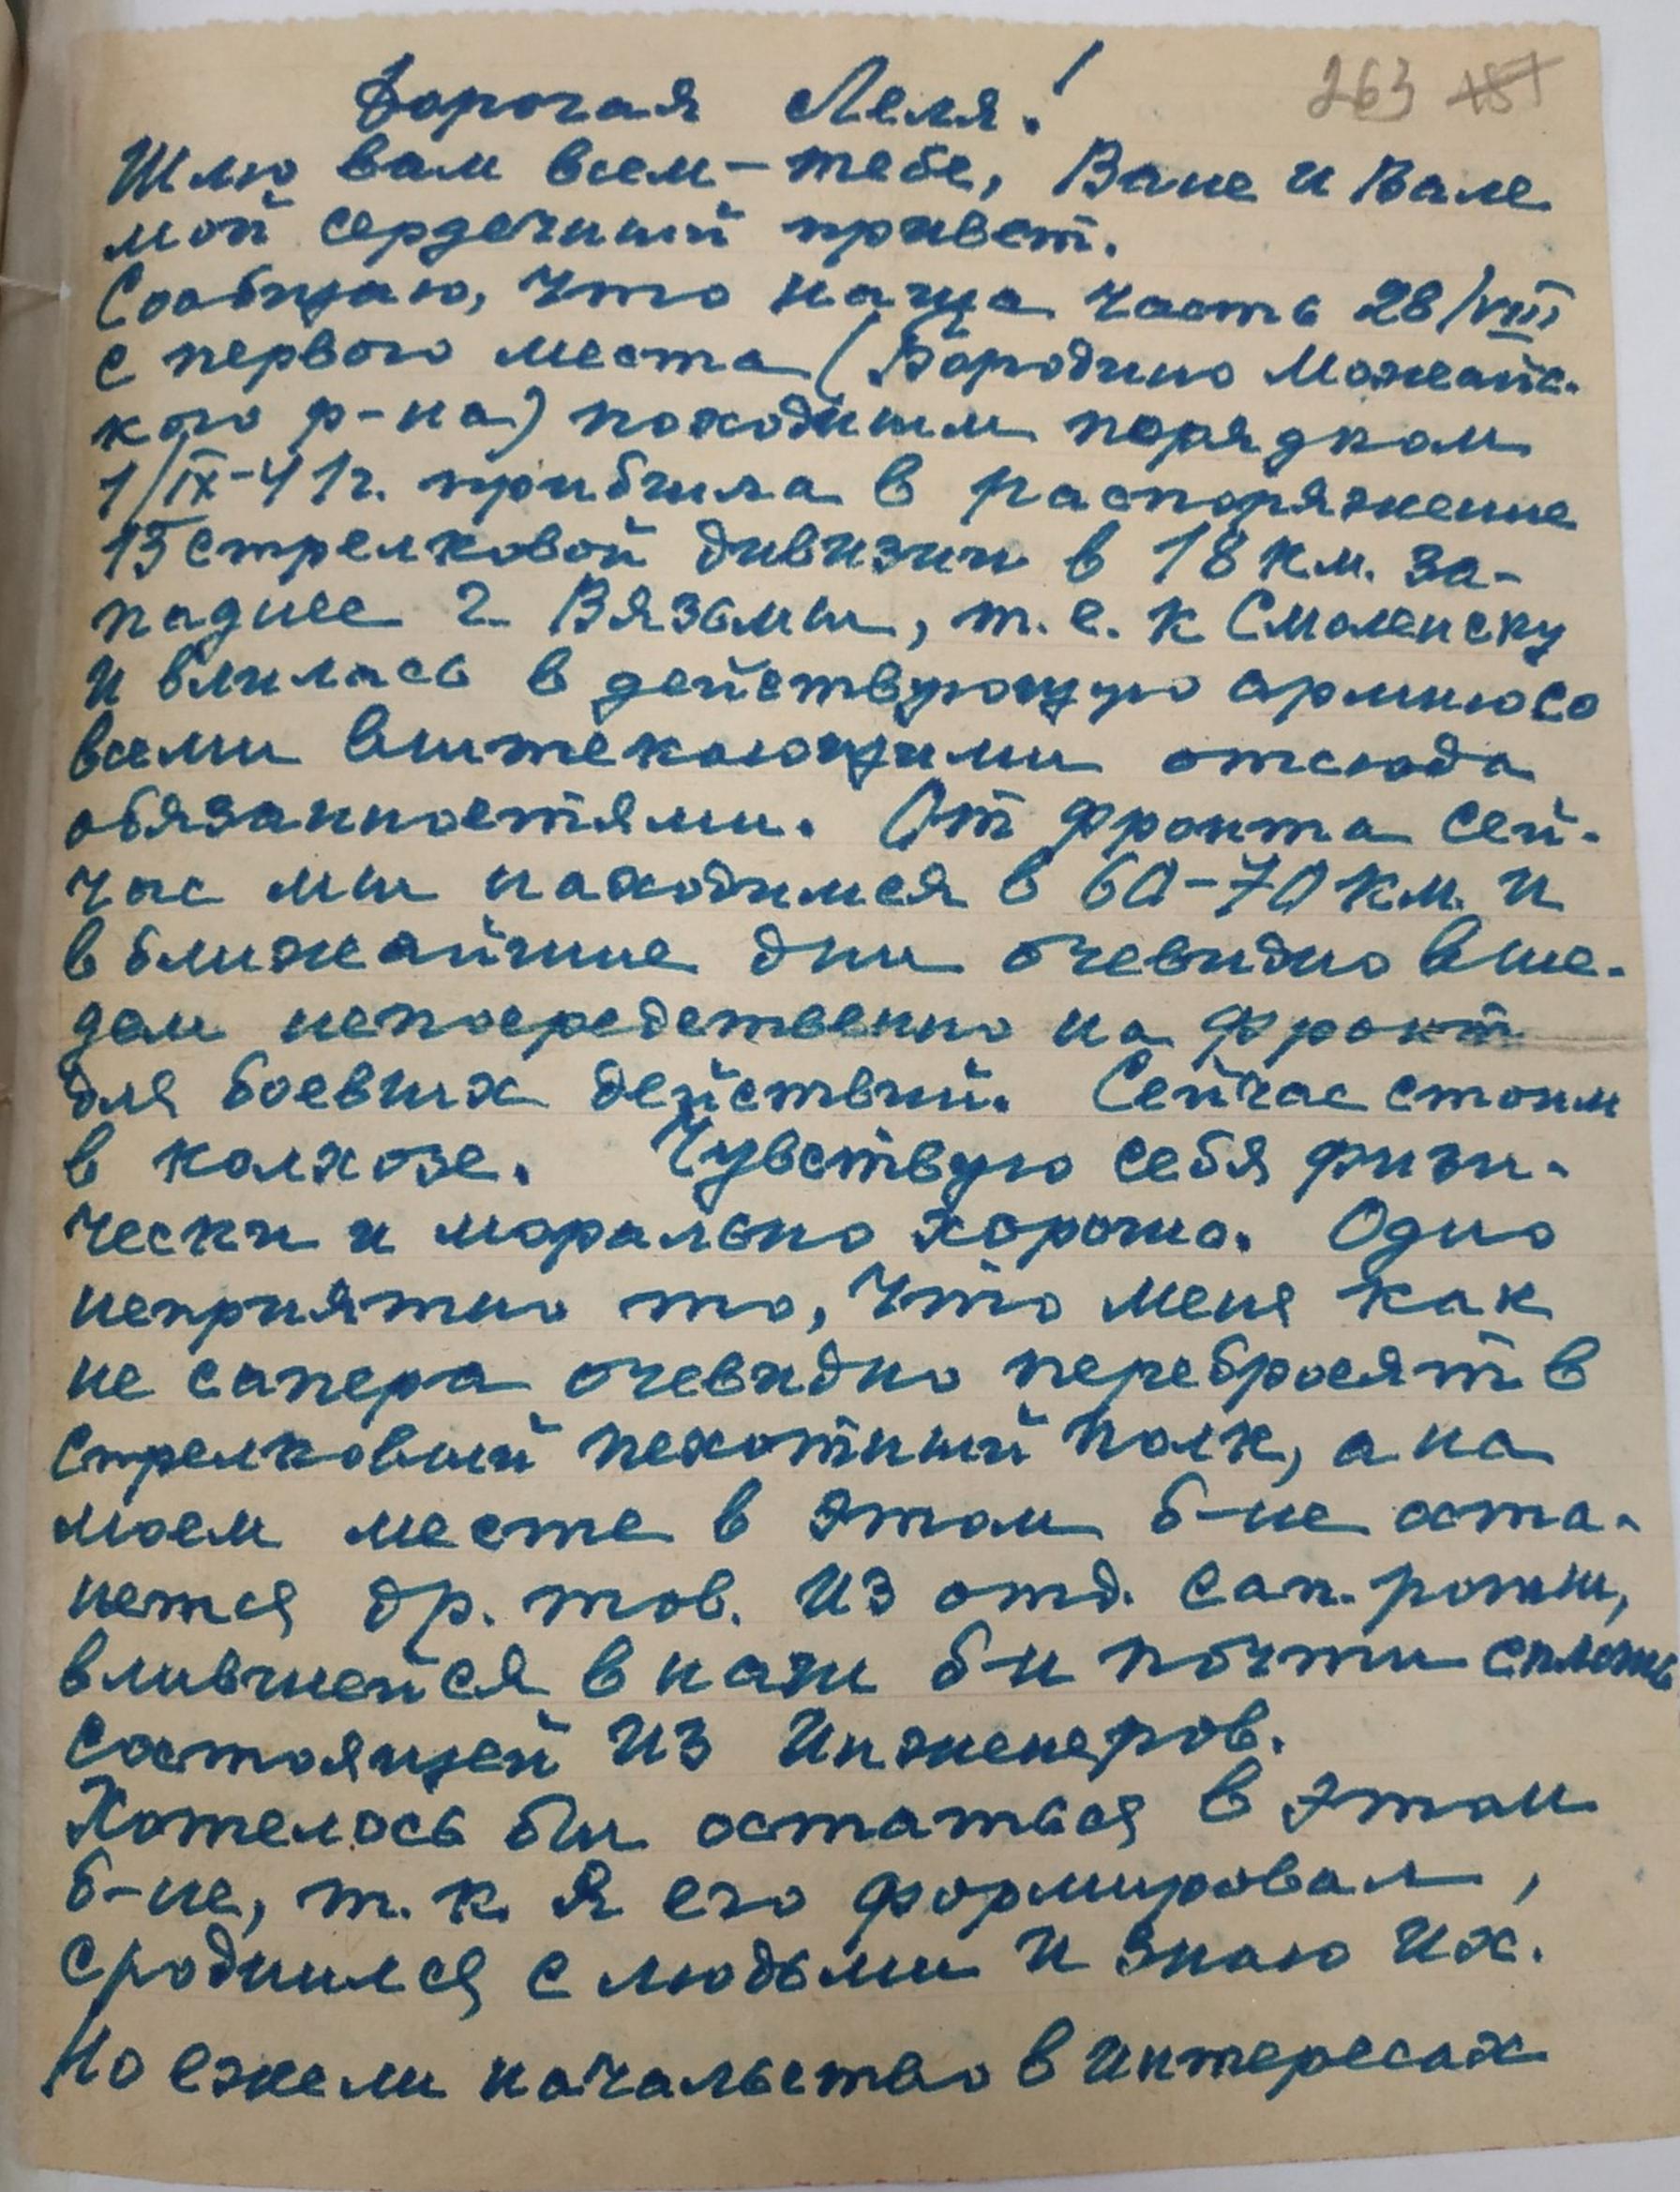 263 157
Дорогая Леля!
Шлю вам всем – тебе, Ване и Вале
мой сердечный привет.
Сообщаю, что наша часть 28/VIII
с первого места (Бородино Можайс-
кого р-на) походным порядком
1/IX-41г. прибыла в распоряжение
15 стрелковой дивизии в 18 км. за-
паднее г. Вязьмы, т.е. к Смоленску
и влилась в действующую армию со
всеми вытекающими отсюда
обязанностями. От фронта сей-
час мы находимся в 60-70 км. и
в ближайшие дни очевидно вые-
дем непосредственно на фронт
для боевых действий. Сейчас стоим
в колхозе. Чувствую себя физи-
чески и морально хорошо. Одно
неприятно то, что меня как
не сапера очевидно перебросят в
стрелковый пехотный полк, а на
моем месте в этом б-не оста-
нется др. тов. из отд. сап. роты,
влившейся в наш б-н почти сплошь
состоящей из инженеров.
Хотелось бы остаться в этом
б-не, т.к. я его формировал,
сроднился с людьми и знаю их.
Но ежели начальство в интересах